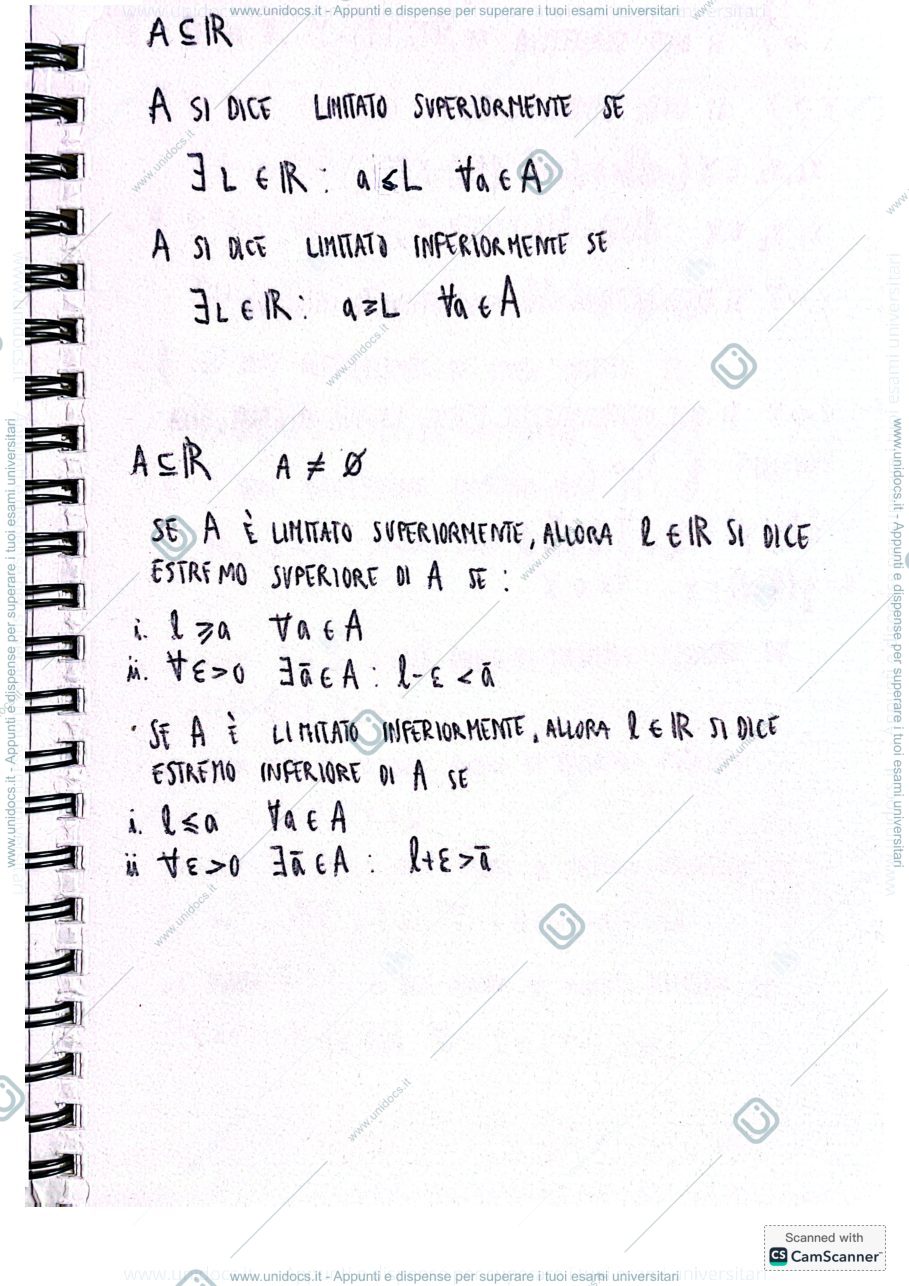 www.unidocs.it - Appunti e dispense per superare i tuoi esami universitari
A ⊆ ℝ
A SI DICE LIMITATO SUPERIORMENTE SE
∃ L ∈ ℝ : a ≤ L ∀a ∈ A
A SI DICE LIMITATO INFERIORMENTE SE
∃ L ∈ ℝ : a ≥ L ∀a ∈ A
A ⊆ ℝ A ≠ Ø
SE A È LIMITATO SUPERIORMENTE, ALLORA l ∈ ℝ SI DICE
ESTREMO SUPERIORE DI A SE :
i. l ⩾ a ∀a ∈ A
ii. ∀ε>0 ∃ā ∈ A : l-ε < ā
· SE A È LIMITATO INFERIORMENTE, ALLORA l ∈ ℝ SI DICE
ESTREMO INFERIORE DI A SE
i. l ≤ a ∀a ∈ A
ii ∀ε>0 ∃ā ∈ A : l+ε > ā
www.unidocs.it - Appunti e dispense per superare i tuoi esami universitari
www.unidocs.it - Appunti e dispense per superare i tuoi esami universitari
www.unidocs.it
www.unidocs.it
www.unidocs.it
www.unidocs.it
www.unidocs.it
www.unidocs.it
Scanned with
CS CamScanner
www.unidocs.it - Appunti e dispense per superare i tuoi esami universitari